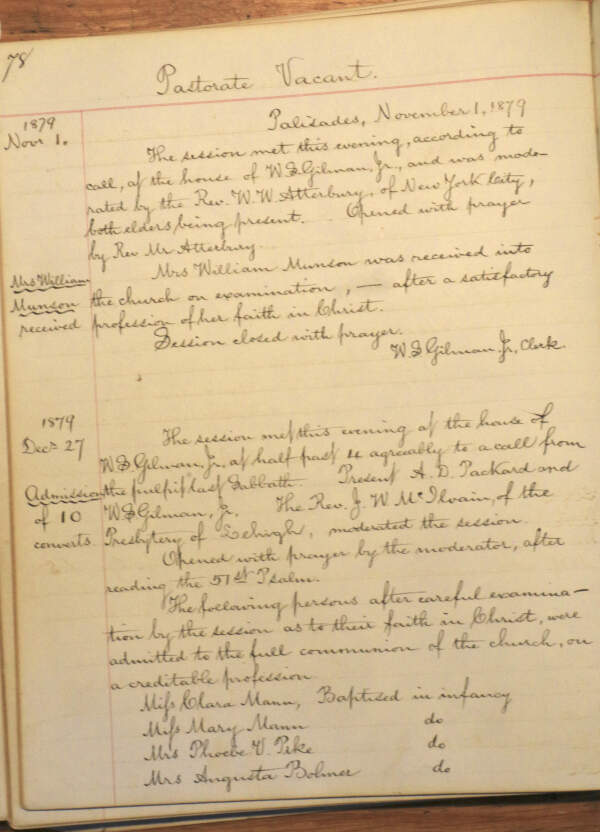 78
Pastorate Vacant.
1879
Novr 1.
Palisades, November 1, 1879
The session met this evening, according to
call, at the house of W. S. Gilman, Jr., and was mode-
rated by the Rev. W. W. Atterbury, of New York City,
both elders being present. Opened with prayer
by Rev Mr Atterbury.
Mrs William
Munson
received
Mrs William Munson was received into
the church on examination, — after a satisfactory
profession of her faith in Christ.
Session closed with prayer.
W. S. Gilman Jr, Clerk.
1879
Decr 27
The session met this evening at the house of
W. S. Gilman, Jr, at half past 4 agreably to a call from
Admission
of 10
converts.
the pulpit last Sabbath. Present A. D. Packard and
W. S. Gilman, Jr. The Rev. J. W. McIlvain, of the
Presbytery of Lehigh, moderated the session.
Opened with prayer by the moderator, after
reading the 51st Psalm.
The following persons after careful examina-
tion by the session as to their faith in Christ, were
admitted to the full communion of the church, on
a creditable profession
Miss Clara Mann, Baptised in infancy
Miss Mary Mann do
Mrs Phoebe V. Pike do
Mrs Augusta Bohmer do